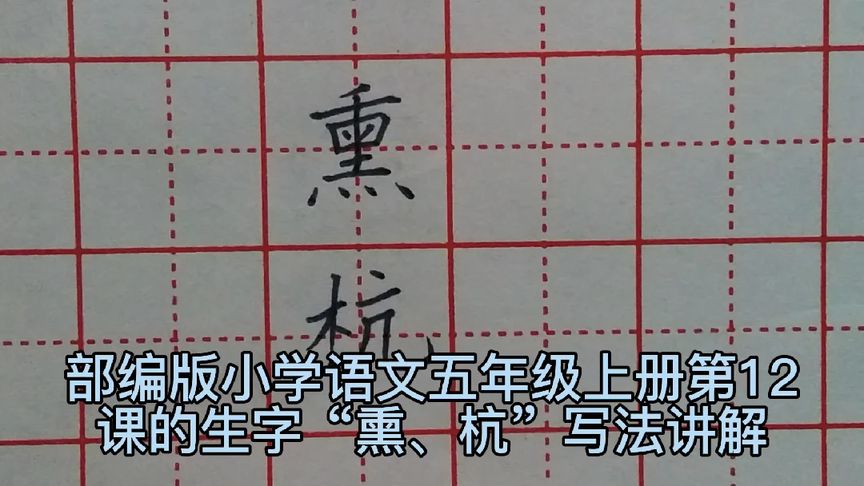 熏
杭
部编版小学语文五年级上册第12
课的生字“熏、杭”写法讲解